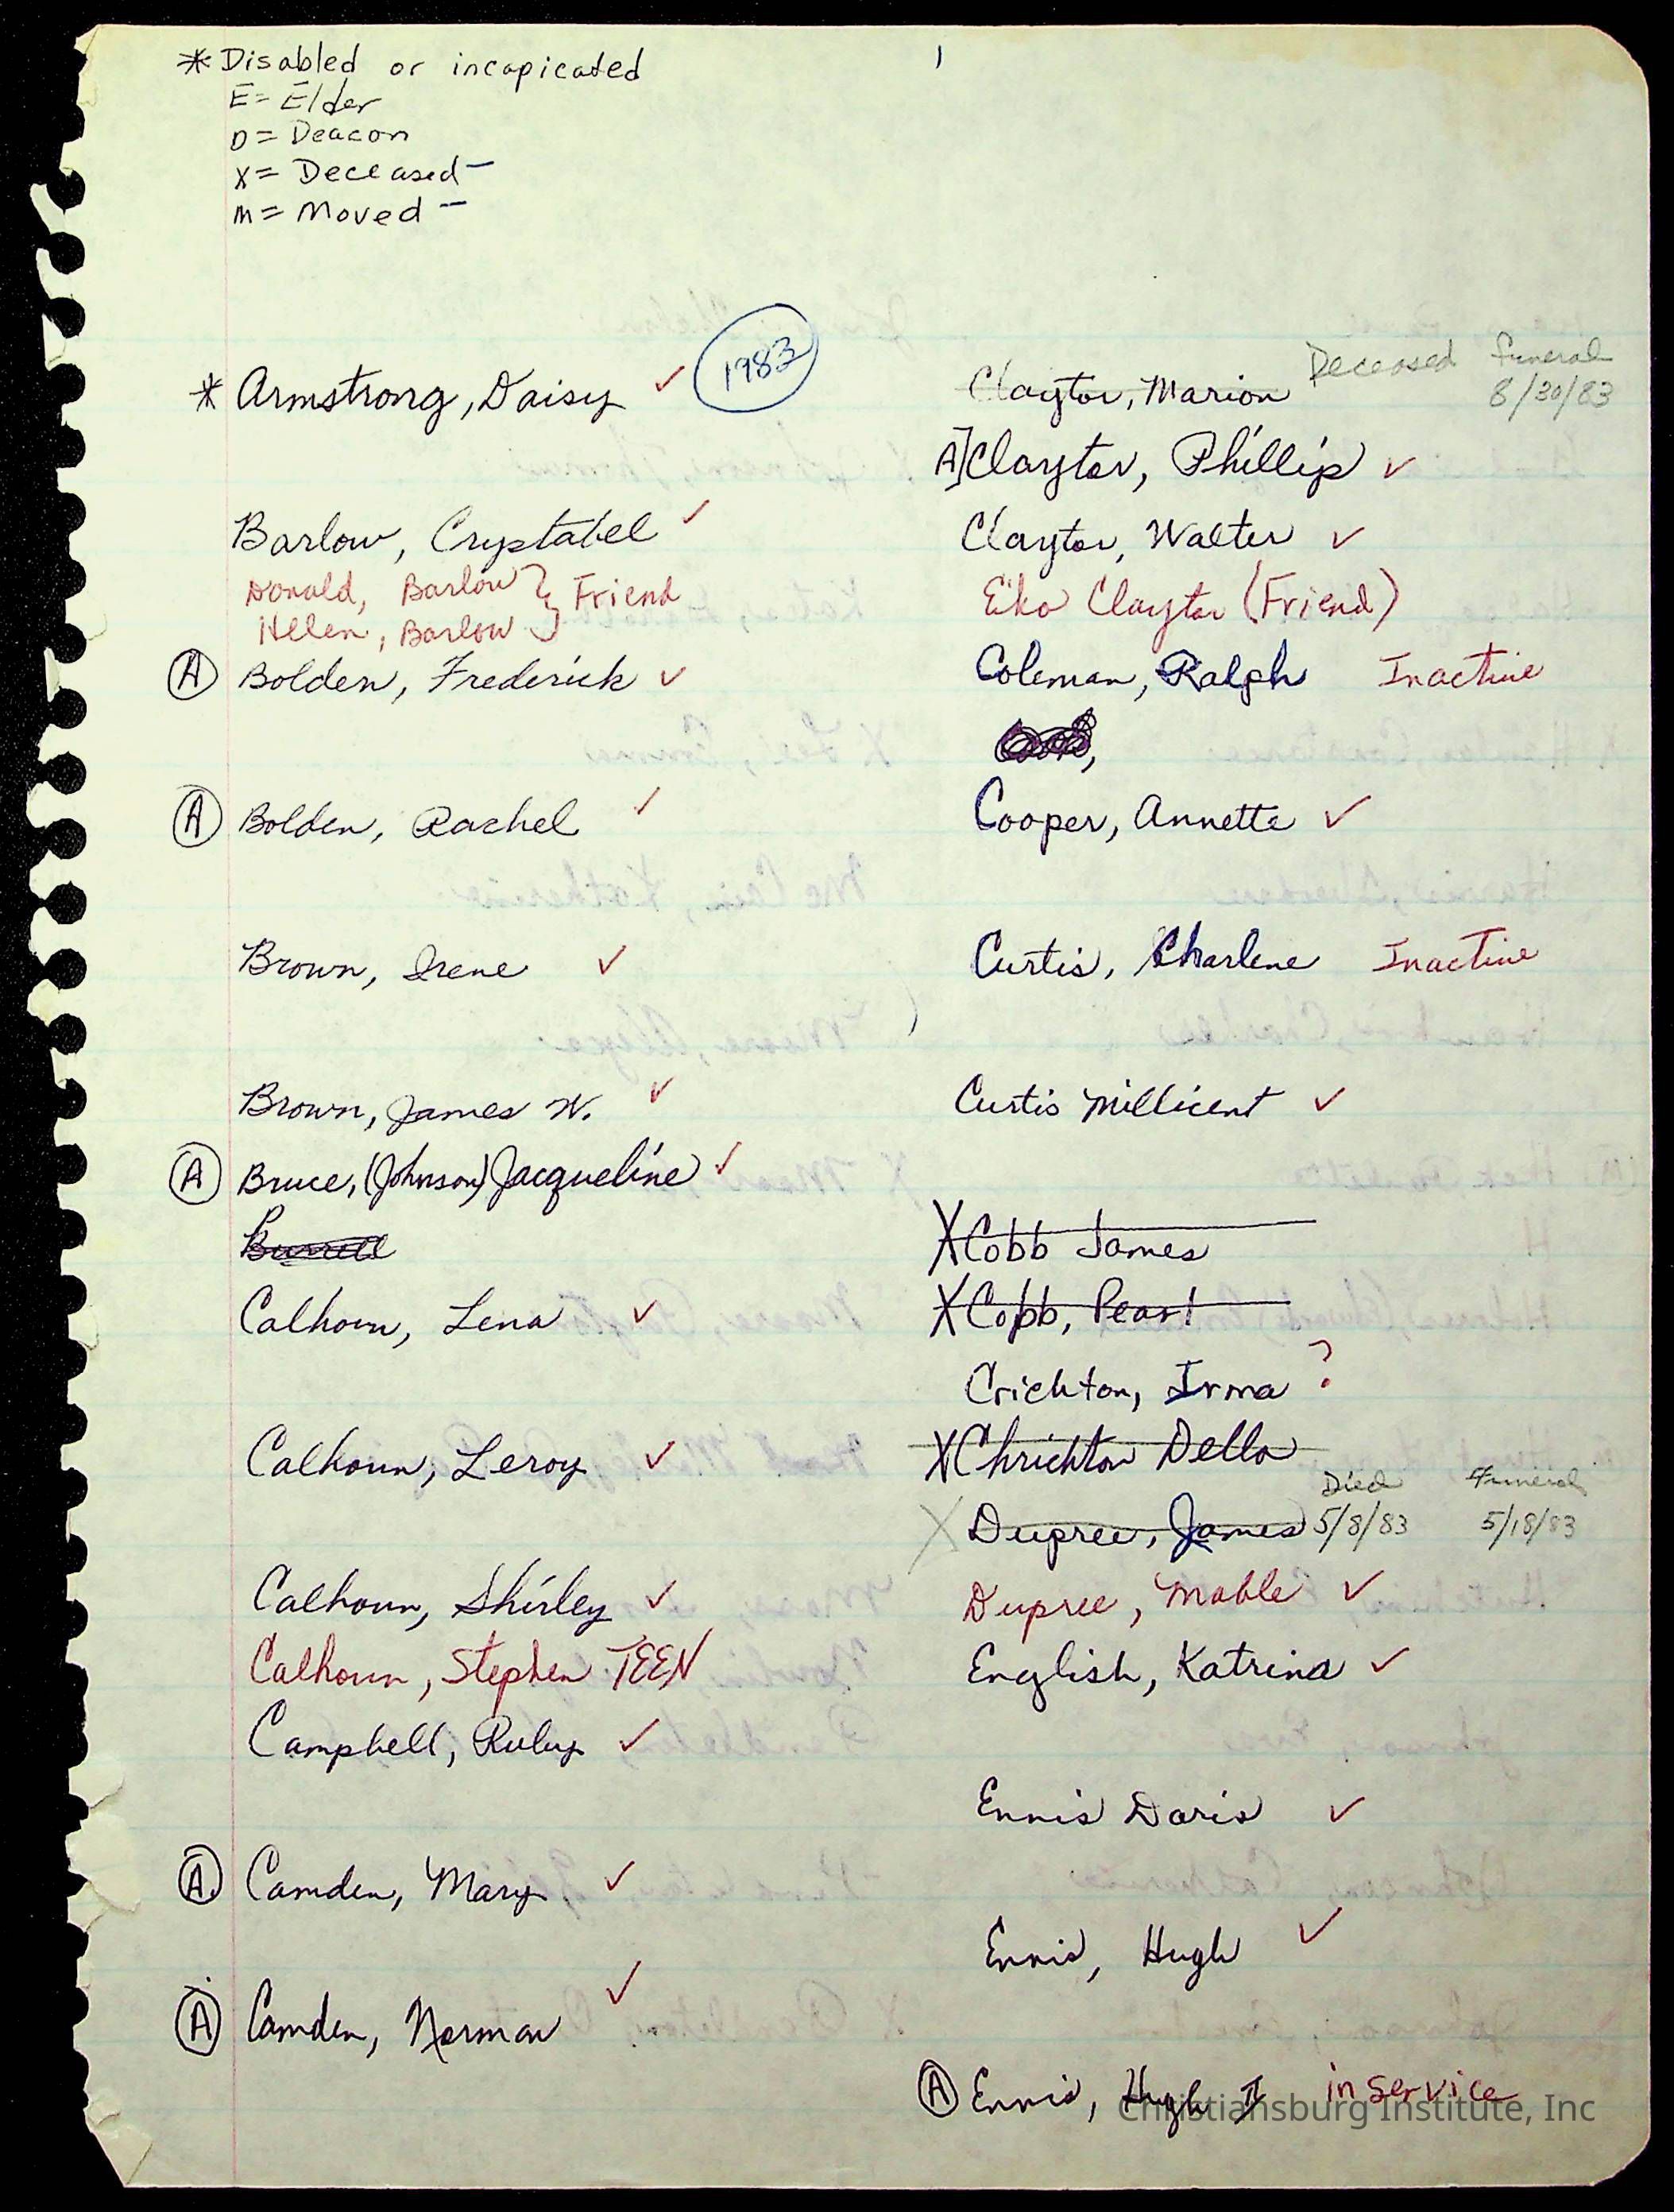 * Disabled or incapicated
E = Elder
D = Deacon
X = Deceased -
M = Moved -
1
* Armstrong, Daisy ✓ 1983
Barlow, Crystabel ✓
Donald, Barlow } Friend
Helen, Barlow
(A) Bolden, Frederick ✓
(A) Bolden, Rachel ✓
Brown, Irene ✓
Brown, James W. ✓
(A) Bruce, (Johnson) Jacqueline ✓
Burrell
Calhoun, Lena ✓
Calhoun, Leroy ✓
Calhoun, Shirley ✓
Calhoun, Stephen TEEN
Campbell, Ruby ✓
(A) Camden, Mary ✓
(A) Camden, Norman ✓
Claytor, Marion Deceased Funeral 8/30/83
A] Claytor, Phillip ✓
Claytor, Walter ✓
Eko Claytor (Friend)
Coleman, Ralph Inactive
Cooper, Annette ✓
Curtis, Charlene Inactive
Curtis Millicent ✓
X Cobb James
X Cobb, Pearl
Crichton, Irma ?
X Chrichton Della
X Dupree, James Died 5/8/83 Funeral 5/18/83
Dupree, Mable ✓
English, Katrina ✓
Ennis Doris ✓
Ennis, Hugh ✓
(A) Ennis, Hugh II in service
Christiansburg Institute, Inc